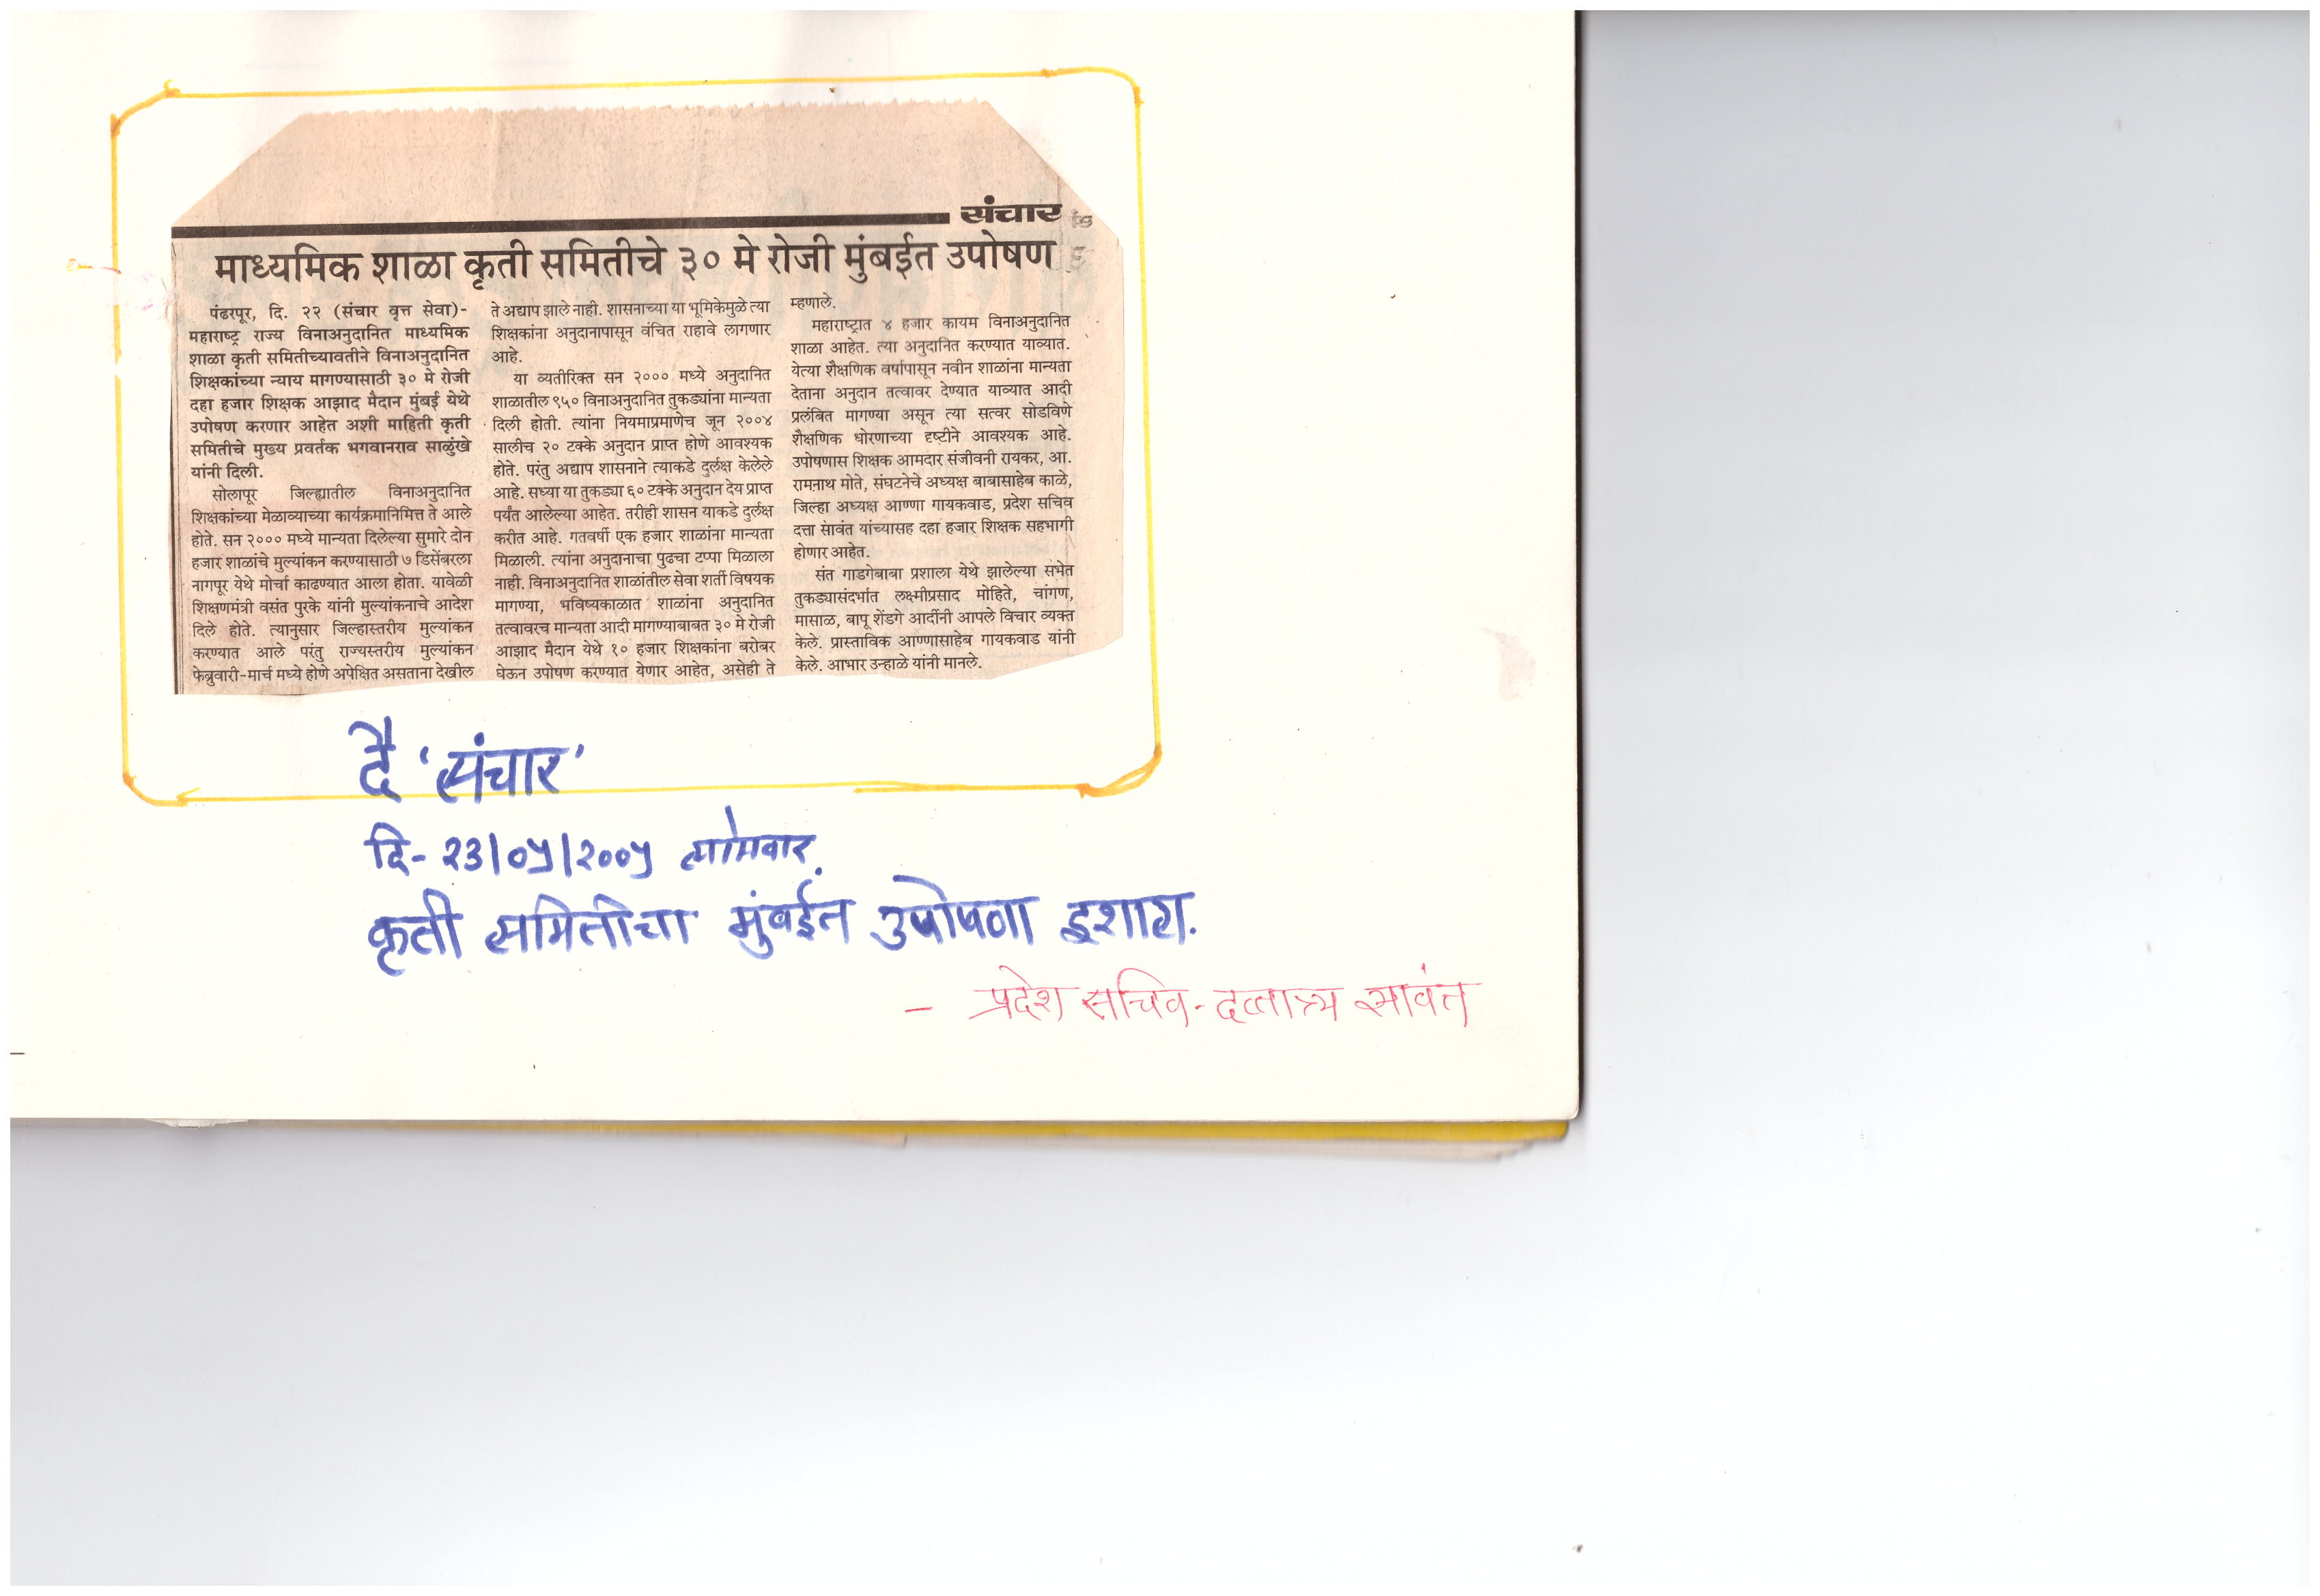 संचार
माध्यमिक शाळा कृती समितीचे ३० मे रोजी मुंबईत उपोषण
पंढरपूर, दि. २२ (संचार वृत्त सेवा)-
महाराष्ट्र राज्य विनाअनुदानित माध्यमिक
शाळा कृती समितीच्यावतीने विनाअनुदानित
शिक्षकांच्या न्याय मागण्यासाठी ३० मे रोजी
दहा हजार शिक्षक आझाद मैदान मुंबई येथे
उपोषण करणार आहेत अशी माहिती कृती
समितीचे मुख्य प्रवर्तक भगवानराव साळुंखे
यांनी दिली.
सोलापूर जिल्ह्यातील विनाअनुदानित
शिक्षकांच्या मेळाव्याच्या कार्यक्रमानिमित्त ते आले
होते. सन २००० मध्ये मान्यता दिलेल्या सुमारे दोन
हजार शाळांचे मुल्यांकन करण्यासाठी ७ डिसेंबरला
नागपूर येथे मोर्चा काढण्यात आला होता. यावेळी
शिक्षणमंत्री वसंत पुरके यांनी मुल्यांकनाचे आदेश
दिले होते. त्यानुसार जिल्हास्तरीय मुल्यांकन
करण्यात आले परंतु राज्यस्तरीय मुल्यांकन
फेब्रुवारी-मार्च मध्ये होणे अपेक्षित असताना देखील
ते अद्याप झाले नाही. शासनाच्या या भूमिकेमुळे त्या
शिक्षकांना अनुदानापासून वंचित राहावे लागणार
आहे.
या व्यतीरिक्त सन २००० मध्ये अनुदानित
शाळातील ९५० विनाअनुदानित तुकड्यांना मान्यता
दिली होती. त्यांना नियमाप्रमाणेच जून २००४
सालीच २० टक्के अनुदान प्राप्त होणे आवश्यक
होते. परंतु अद्याप शासनाने त्याकडे दुर्लक्ष केलेले
आहे. सध्या या तुकड्या ६० टक्के अनुदान देय प्राप्त
पर्यंत आलेल्या आहेत. तरीही शासन याकडे दुर्लक्ष
करीत आहे. गतवर्षी एक हजार शाळांना मान्यता
मिळाली. त्यांना अनुदानाचा पुढचा टप्पा मिळाला
नाही. विनाअनुदानित शाळांतील सेवा शर्ती विषयक
मागण्या, भविष्यकाळात शाळांना अनुदानित
तत्वावरच मान्यता आदी मागण्याबाबत ३० मे रोजी
आझाद मैदान येथे १० हजार शिक्षकांना बरोबर
घेऊन उपोषण करण्यात येणार आहेत, असेही ते
म्हणाले.
महाराष्ट्रात ४ हजार कायम विनाअनुदानित
शाळा आहेत. त्या अनुदानित करण्यात याव्यात.
येत्या शैक्षणिक वर्षापासून नवीन शाळांना मान्यता
देताना अनुदान तत्वावर देण्यात याव्यात आदी
प्रलंबित मागण्या असून त्या सत्वर सोडविणे
शैक्षणिक धोरणाच्या दृष्टीने आवश्यक आहे.
उपोषणास शिक्षक आमदार संजीवनी रायकर, आ.
रामनाथ मोते, संघटनेचे अध्यक्ष बाबासाहेब काळे,
जिल्हा अध्यक्ष आण्णा गायकवाड, प्रदेश सचिव
दत्ता सावंत यांच्यासह दहा हजार शिक्षक सहभागी
होणार आहेत.
संत गाडगेबाबा प्रशाला येथे झालेल्या सभेत
तुकड्यासंदर्भात लक्ष्मीप्रसाद मोहिते, चांगण,
मासाळ, बापू शेंडगे आदींनी आपले विचार व्यक्त
केले. प्रास्ताविक आण्णासाहेब गायकवाड यांनी
केले. आभार उन्हाळे यांनी मानले.
दै 'संचार'
दि- २३/०५/२००५ सोमवार.
कृती समितीचा मुंबईत उपोषणा इशारा.
- प्रदेश सचिव - दत्तात्र्य सावंत